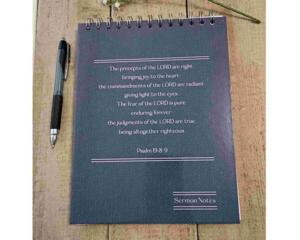 The precepts of the LORD are right
bringing joy to the heart
the commandments of the LORD are radiant
giving light to the eyes
The fear of the LORD is pure
enduring forever
the judgments of the LORD are true,
being altogether righteous
Psalm 19:8-9
Sermon Notes